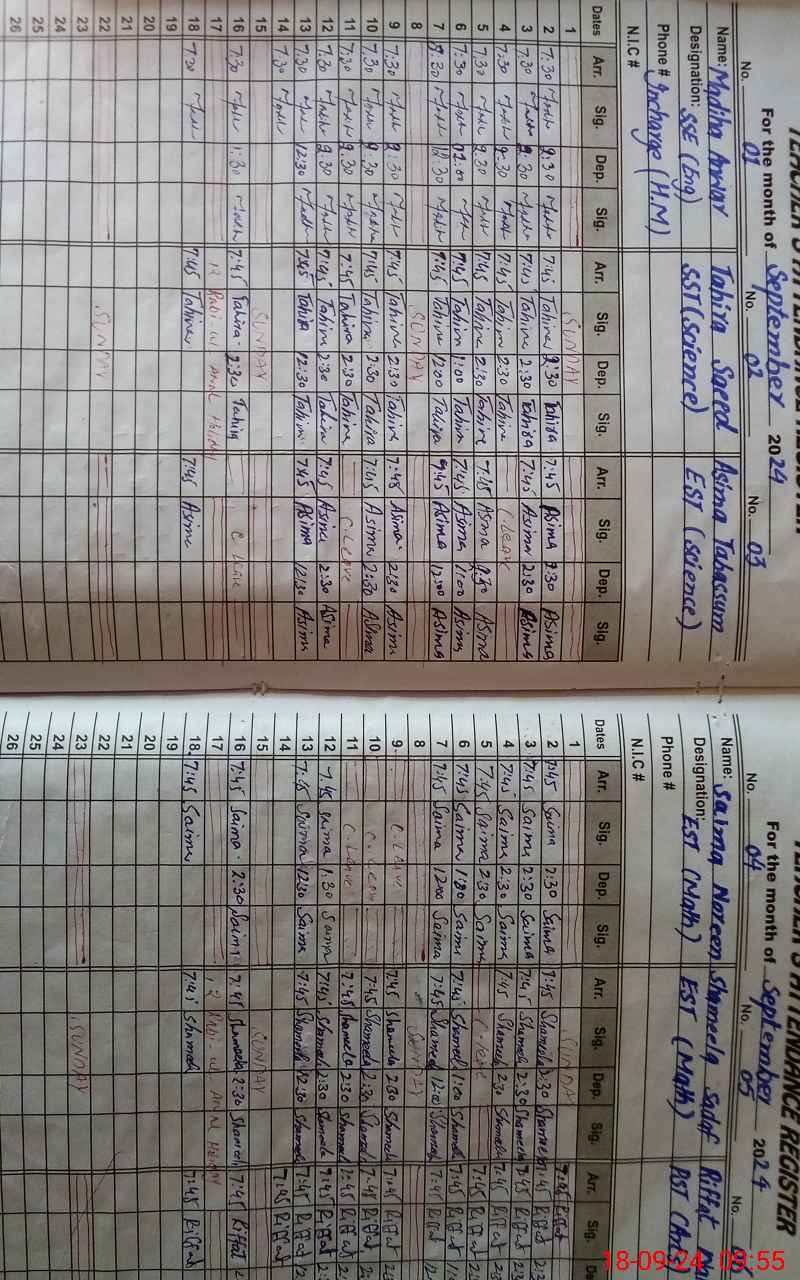 TEACHER'S ATTENDANCE REGISTER
For the month of September 2024
No. 01 No. 02 No. 03
Name: Madiha Anwar Tahira Saeed Asima Tabassum
Designation: SSE (Eng) SST (Science) EST (Science)
Phone # Incharge (H.M)
N.I.C #
Dates Arr. Sig. Dep. Sig. Arr. Sig. Dep. Sig. Arr. Sig. Dep. Sig.
1 SUNDAY
2 7:30 2:30 7:45 Tahira 2:30 Tahira 7:45 Asima 2:30 Asima
3 7:30 2:30 7:45 Tahira 2:30 Tahira 7:45 Asima 2:30 Asima
4 7:30 2:30 7:45 Tahira 2:30 Tahira C. Leave
5 7:30 2:30 7:45 Tahira 2:30 Tahira 7:45 Asima 2:30 Asima
6 7:30 7:45 Tahira 1:00 Tahira 7:45 Asima 1:00 Asima
7 12:30 Tahira 12:00 Asima 12:00 Asima
8 SUNDAY
9 7:30 2:30 7:45 Tahira 2:30 Tahira 7:45 Asima 2:30 Asima
10 7:30 2:30 7:45 Tahira 2:30 Tahira 7:45 Asima 2:30 Asima
11 7:30 2:30 7:45 Tahira 2:30 Tahira C. Leave
12 7:30 2:30 7:45 Tahira 2:30 Tahira 7:45 Asima 2:30 Asima
13 7:30 12:30 7:45 Tahira 12:30 Tahira 7:45 Asima 12:30 Asima
14 7:30
15 SUNDAY
16 7:30 1:30 7:45 Tahira 2:30 Tahira C. Leave
17 12 Rabi-ul Holiday
18 7:30 7:45 Tahira 7:45 Asima
19
20
21
22 SUNDAY
23
24
25
26
TEACHER'S ATTENDANCE REGISTER
For the month of September 2024
No. 04 No. 05 No.
Name: Saima Noreen Shameela Sadaf Riffat
Designation: EST (Math) EST (Math) PST
Phone #
N.I.C #
Dates Arr. Sig. Dep. Sig. Arr. Sig. Dep. Sig. Arr. Sig. Dep.
1 SUNDAY
2 7:45 Saima 2:30 Saima 7:45 Shameela 2:30 Shameela 7:45 Riffat
3 7:45 Saima 2:30 Saima 7:45 Shameela 2:30 Shameela 7:45 Riffat
4 7:45 Saima 2:30 Saima 7:45 Shameela 2:30 Shameela 7:45 Riffat
5 7:45 Saima 2:30 Saima C. Leave 7:45 Riffat
6 7:45 Saima Saima 7:45 Shameela 1:00 Shameela 7:45 Riffat
7 7:45 Saima 12:00 Saima 7:45 Shameela 12:00 Shameela 7:45 Riffat
8 SUNDAY
9 C. Leave 7:45 Shameela 2:30 Shameela 7:45 Riffat
10 C. Leave 7:45 Shameela 2:30 Shameela 7:45 Riffat
11 C. Leave 7:45 Shameela 2:30 Shameela 7:45 Riffat
12 7:45 Saima 1:30 Saima 7:45 Shameela 2:30 Shameela 7:45 Riffat
13 7:45 Saima 12:30 Saima 7:45 Shameela 12:30 Shameela 7:45 Riffat
14 7:45 Riffat
15 SUNDAY
16 7:45 Saima 2:30 Saima 7:45 Shameela 2:30 Shameela 7:45 Riffat
17 12 Rabi-ul
18 7:45 Saima 7:45 Shameela 7:45 Riffat
19
20
21
22
23 SUNDAY
24
25
26
18-09-24 09:55